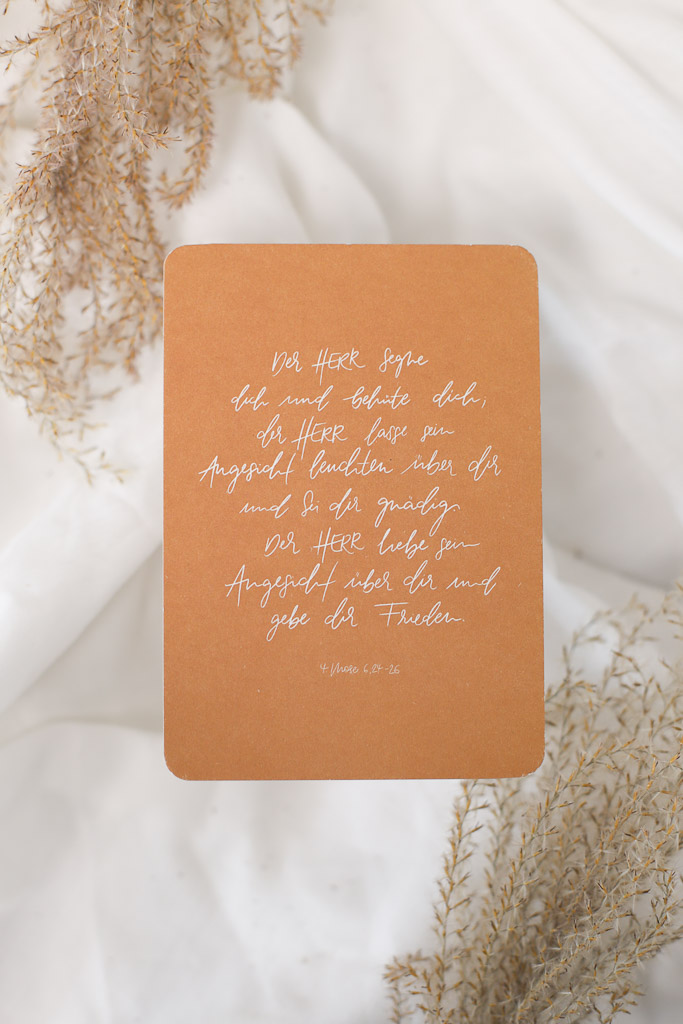 Der HERR segne
dich und behüte dich,
der HERR lasse sein
Angesicht leuchten über dir
und sei dir gnädig.
Der HERR hebe sein
Angesicht über dir und
gebe dir Frieden.
4 Mose 6,24-26